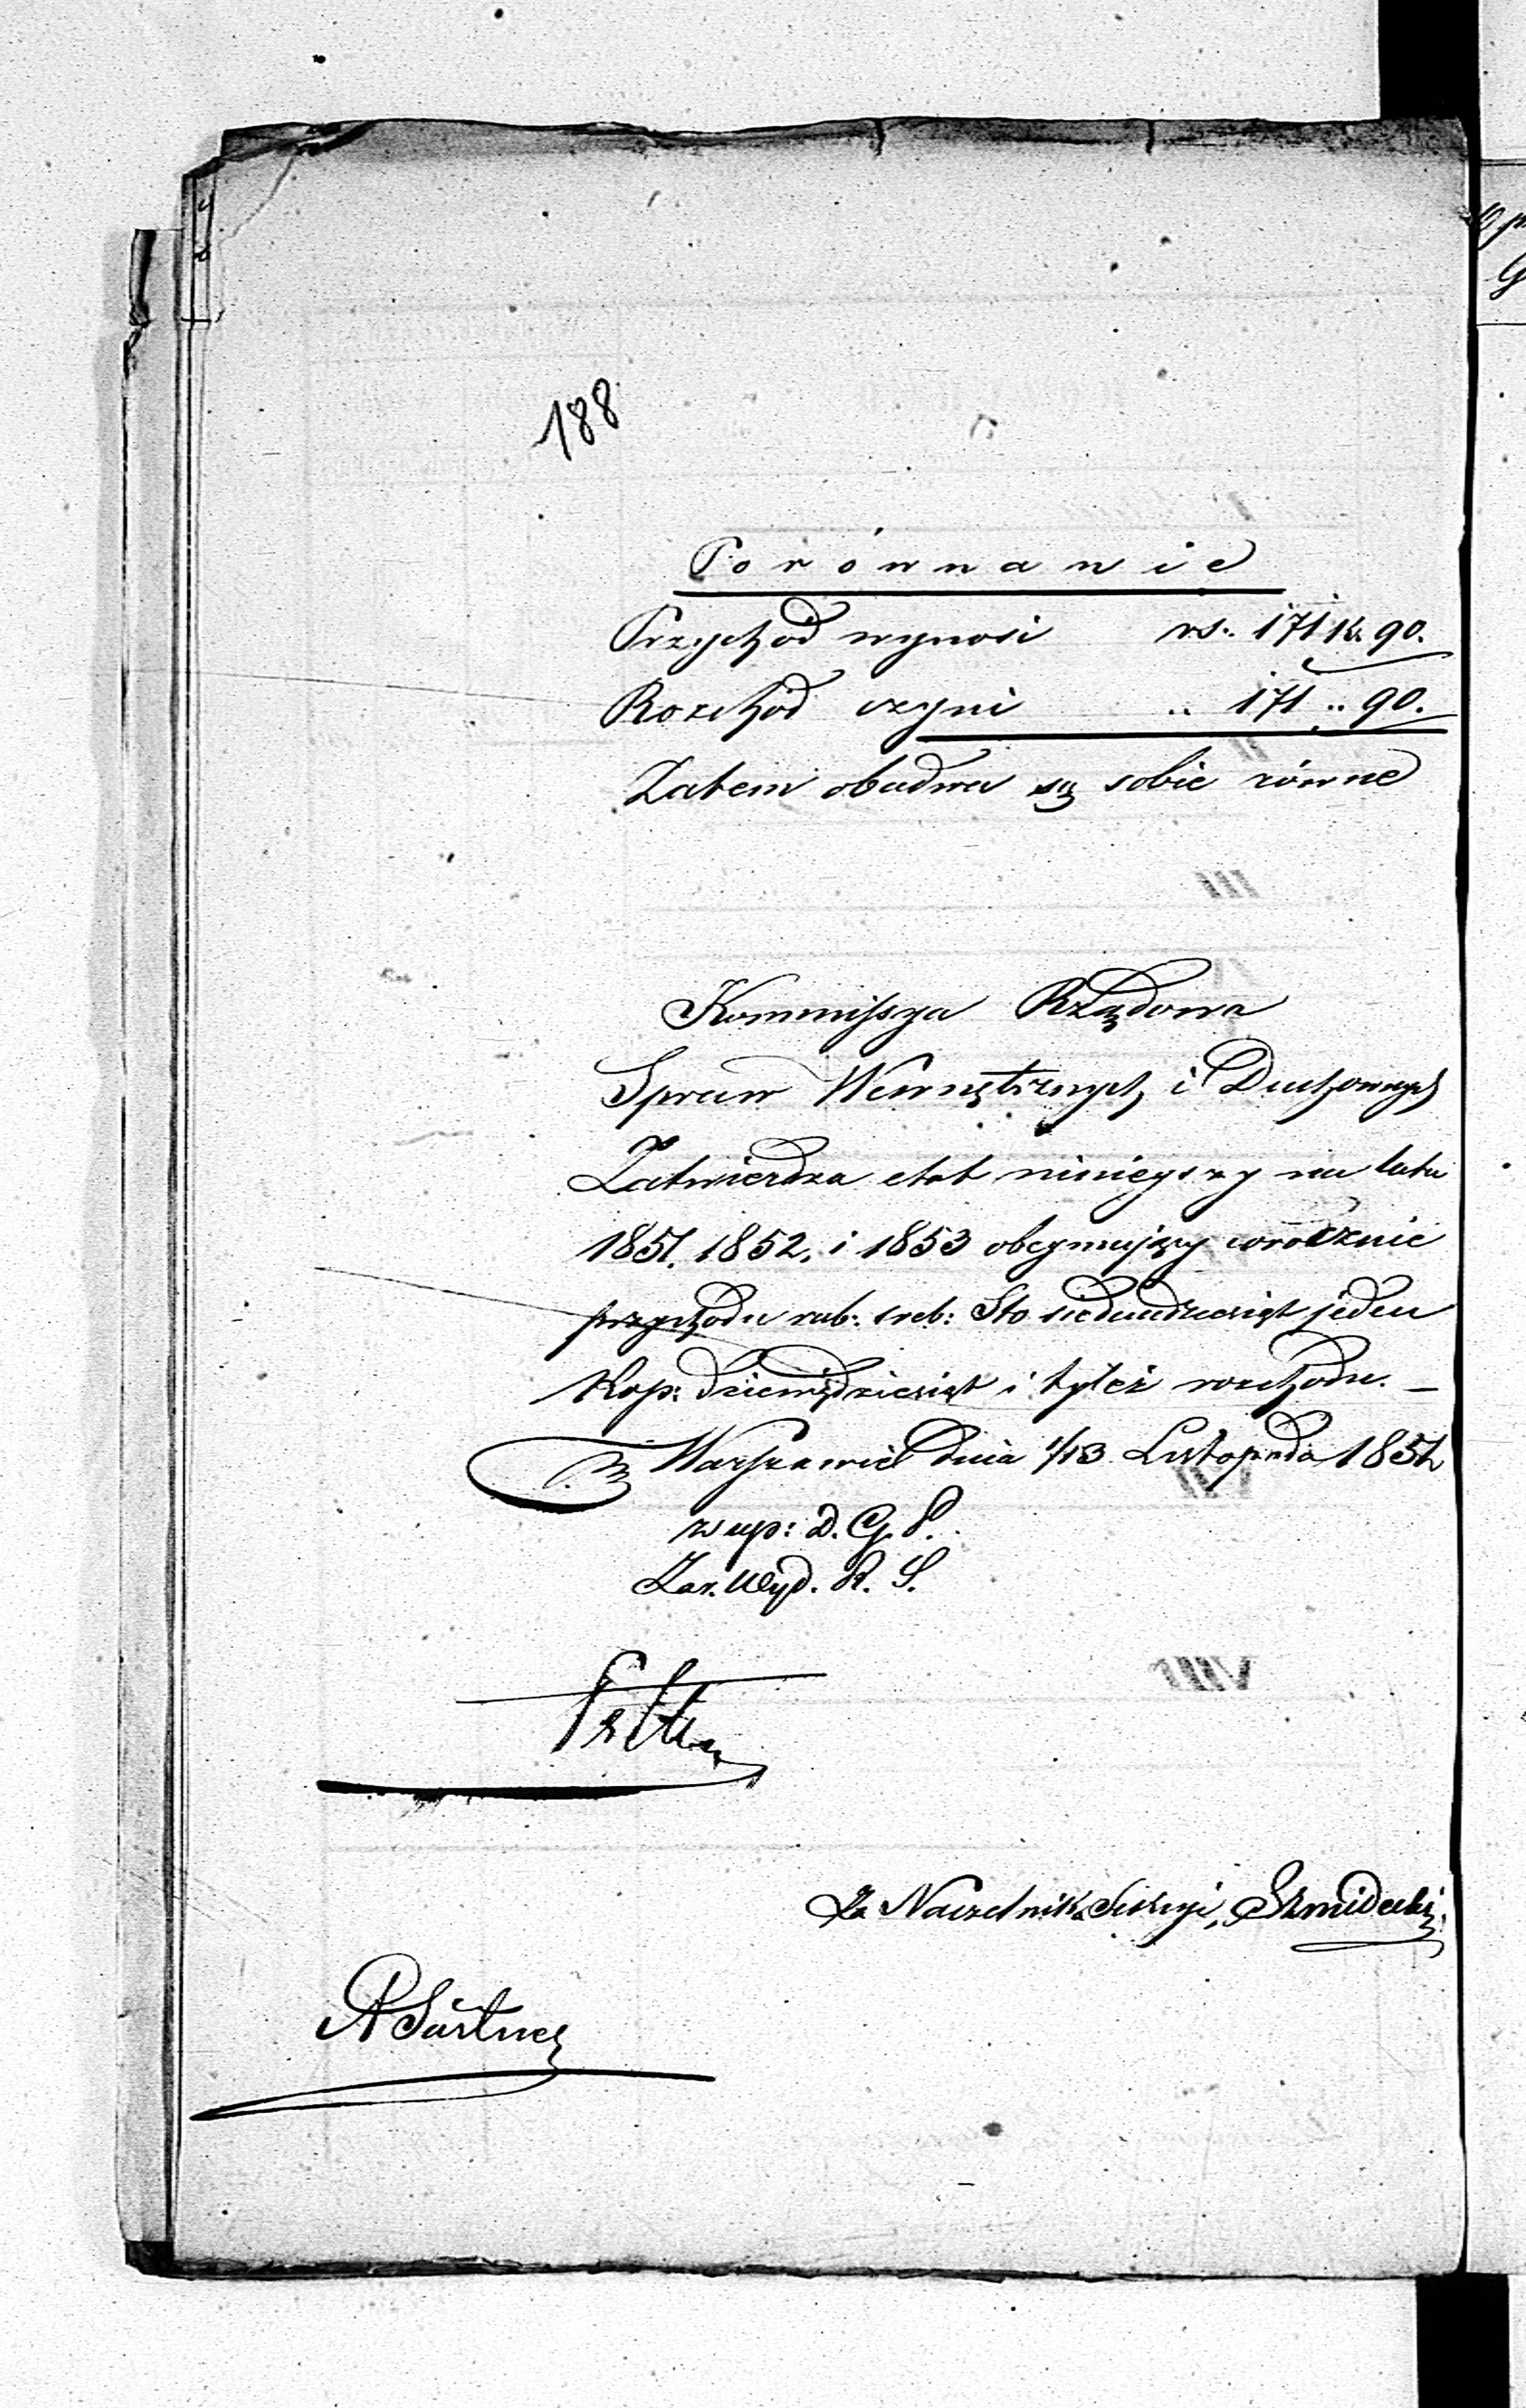 188
Porównanie
Przychód wynosi rs. 171 k. 90.
Rozchód czyni " 171 " 90.
Zatem obadwa są sobie równe
Kommissya Rządowa
Spraw Wewnętrznych i Duchownych
Zatwierdza etat ninieyszy na lata
1851. 1852. i 1853 obeymujący corocznie
przychodu rub: sreb: Sto siedmdziesiąt jeden
Kop: dziewiędziesiąt i tyleż rozchodu. —
w Warszawie dnia 1/13 Listopada 1851
z up: D. G. P.
Zar. Wyd. R. S.
Za Naczelnika Sekcyi, Szmidecki